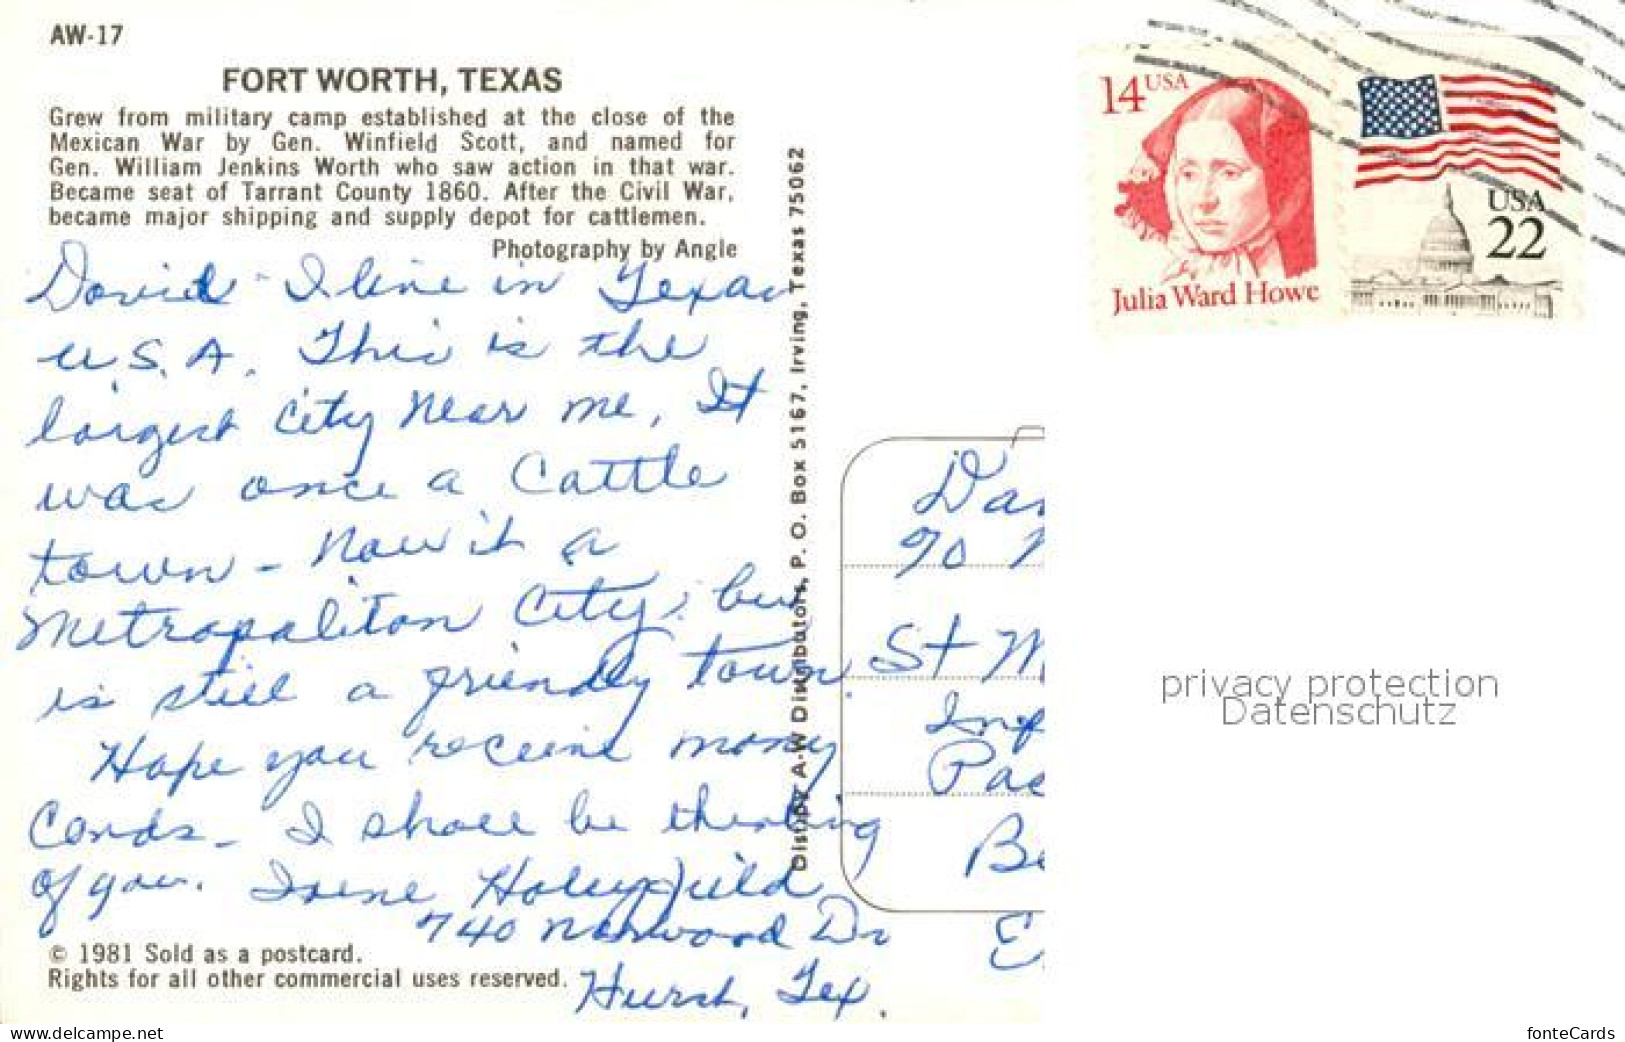 AW-17
FORT WORTH, TEXAS
Grew from military camp established at the close of the
Mexican War by Gen. Winfield Scott, and named for
Gen. William Jenkins Worth who saw action in that war.
Became seat of Tarrant County 1860. After the Civil War,
became major shipping and supply depot for cattlemen.
Photography by Angle
David - I live in Texas
U.S.A. This is the
largest City Near me, It
was once a Cattle
town - Now it a
Metropoliton City, but
is still a friendly town.
Hope you receive many
Cards - I shall be thinking
of you. Irene Holeyfield
740 Norwood Dr
Hurst, Tex.
© 1981 Sold as a postcard.
Rights for all other commercial uses reserved.
A-W Distributors, P. O. Box 5167, Irving, Texas 75062
14 USA
Julia Ward Howe
USA
22
St M
privacy protection
Datenschutz
www.delcampe.net
fonteCards